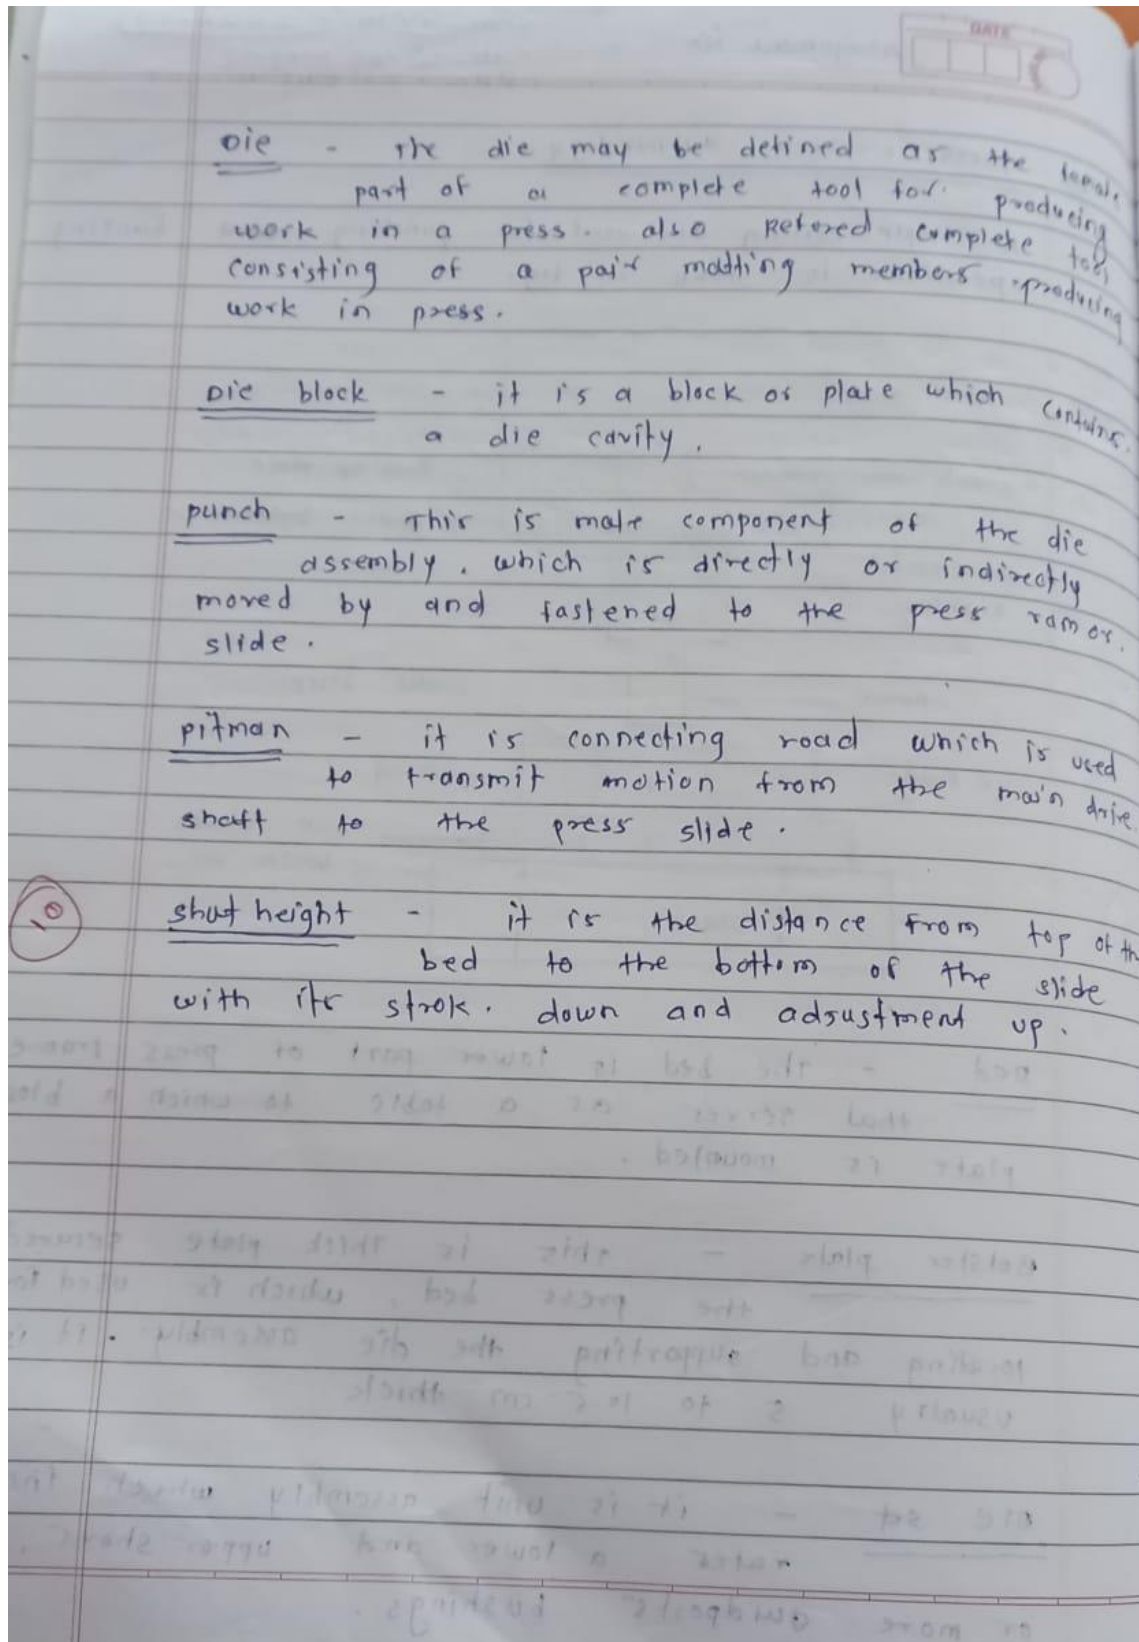 DATE
Die - The die may be defined as the female
part of a complete tool for producing
work in a press. also Refered complete tool
consisting of a pair matting members producing
work in press.
Die block - it is a block or plate which contains
a die cavity.
punch - This is male component of the die
assembly. which is directly or indirectly
moved by and fastened to the press ram or.
slide.
pitman - it is connecting road which is used
to transmit motion from the main drive
shaft to the press slide.
10
shut height - it is the distance from top of th
bed to the bottom of the slide
with its strok. down and adsustment up.